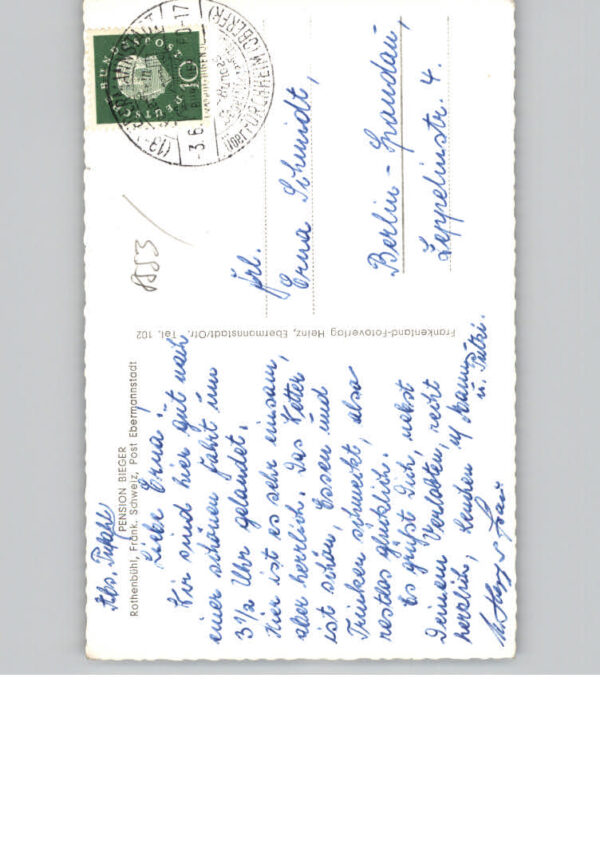 Abs. Pufahl
PENSION BIEGER
Rothenbühl, Fränk. Schweiz, Post Ebermannstadt
Liebe Erna!
Wir sind hier gut nach
einer schönen Fahrt um
3 1/2 Uhr gelandet.
Hier ist es sehr einsam,
aber herrlich. Das Wetter
ist schön, Essen und
Trinken schmeckt, also
restlos glücklich.
Es grüßt Dich, nebst
Deinem Verlobten, recht
herzlich,
u. Frau
u. Putzi.
Frankenland-Fotoverlag Heinz, Ebermannstadt/Ofr. Tel. 102
Frl.
Erna Schmidt,
Berlin-Spandau,
Zeppelinstr. 4.
10
DEUTSCHE BUNDESPOST
EBERMANNSTADT
-3.6.60-17
über FORCHHEIM (OBERFR)